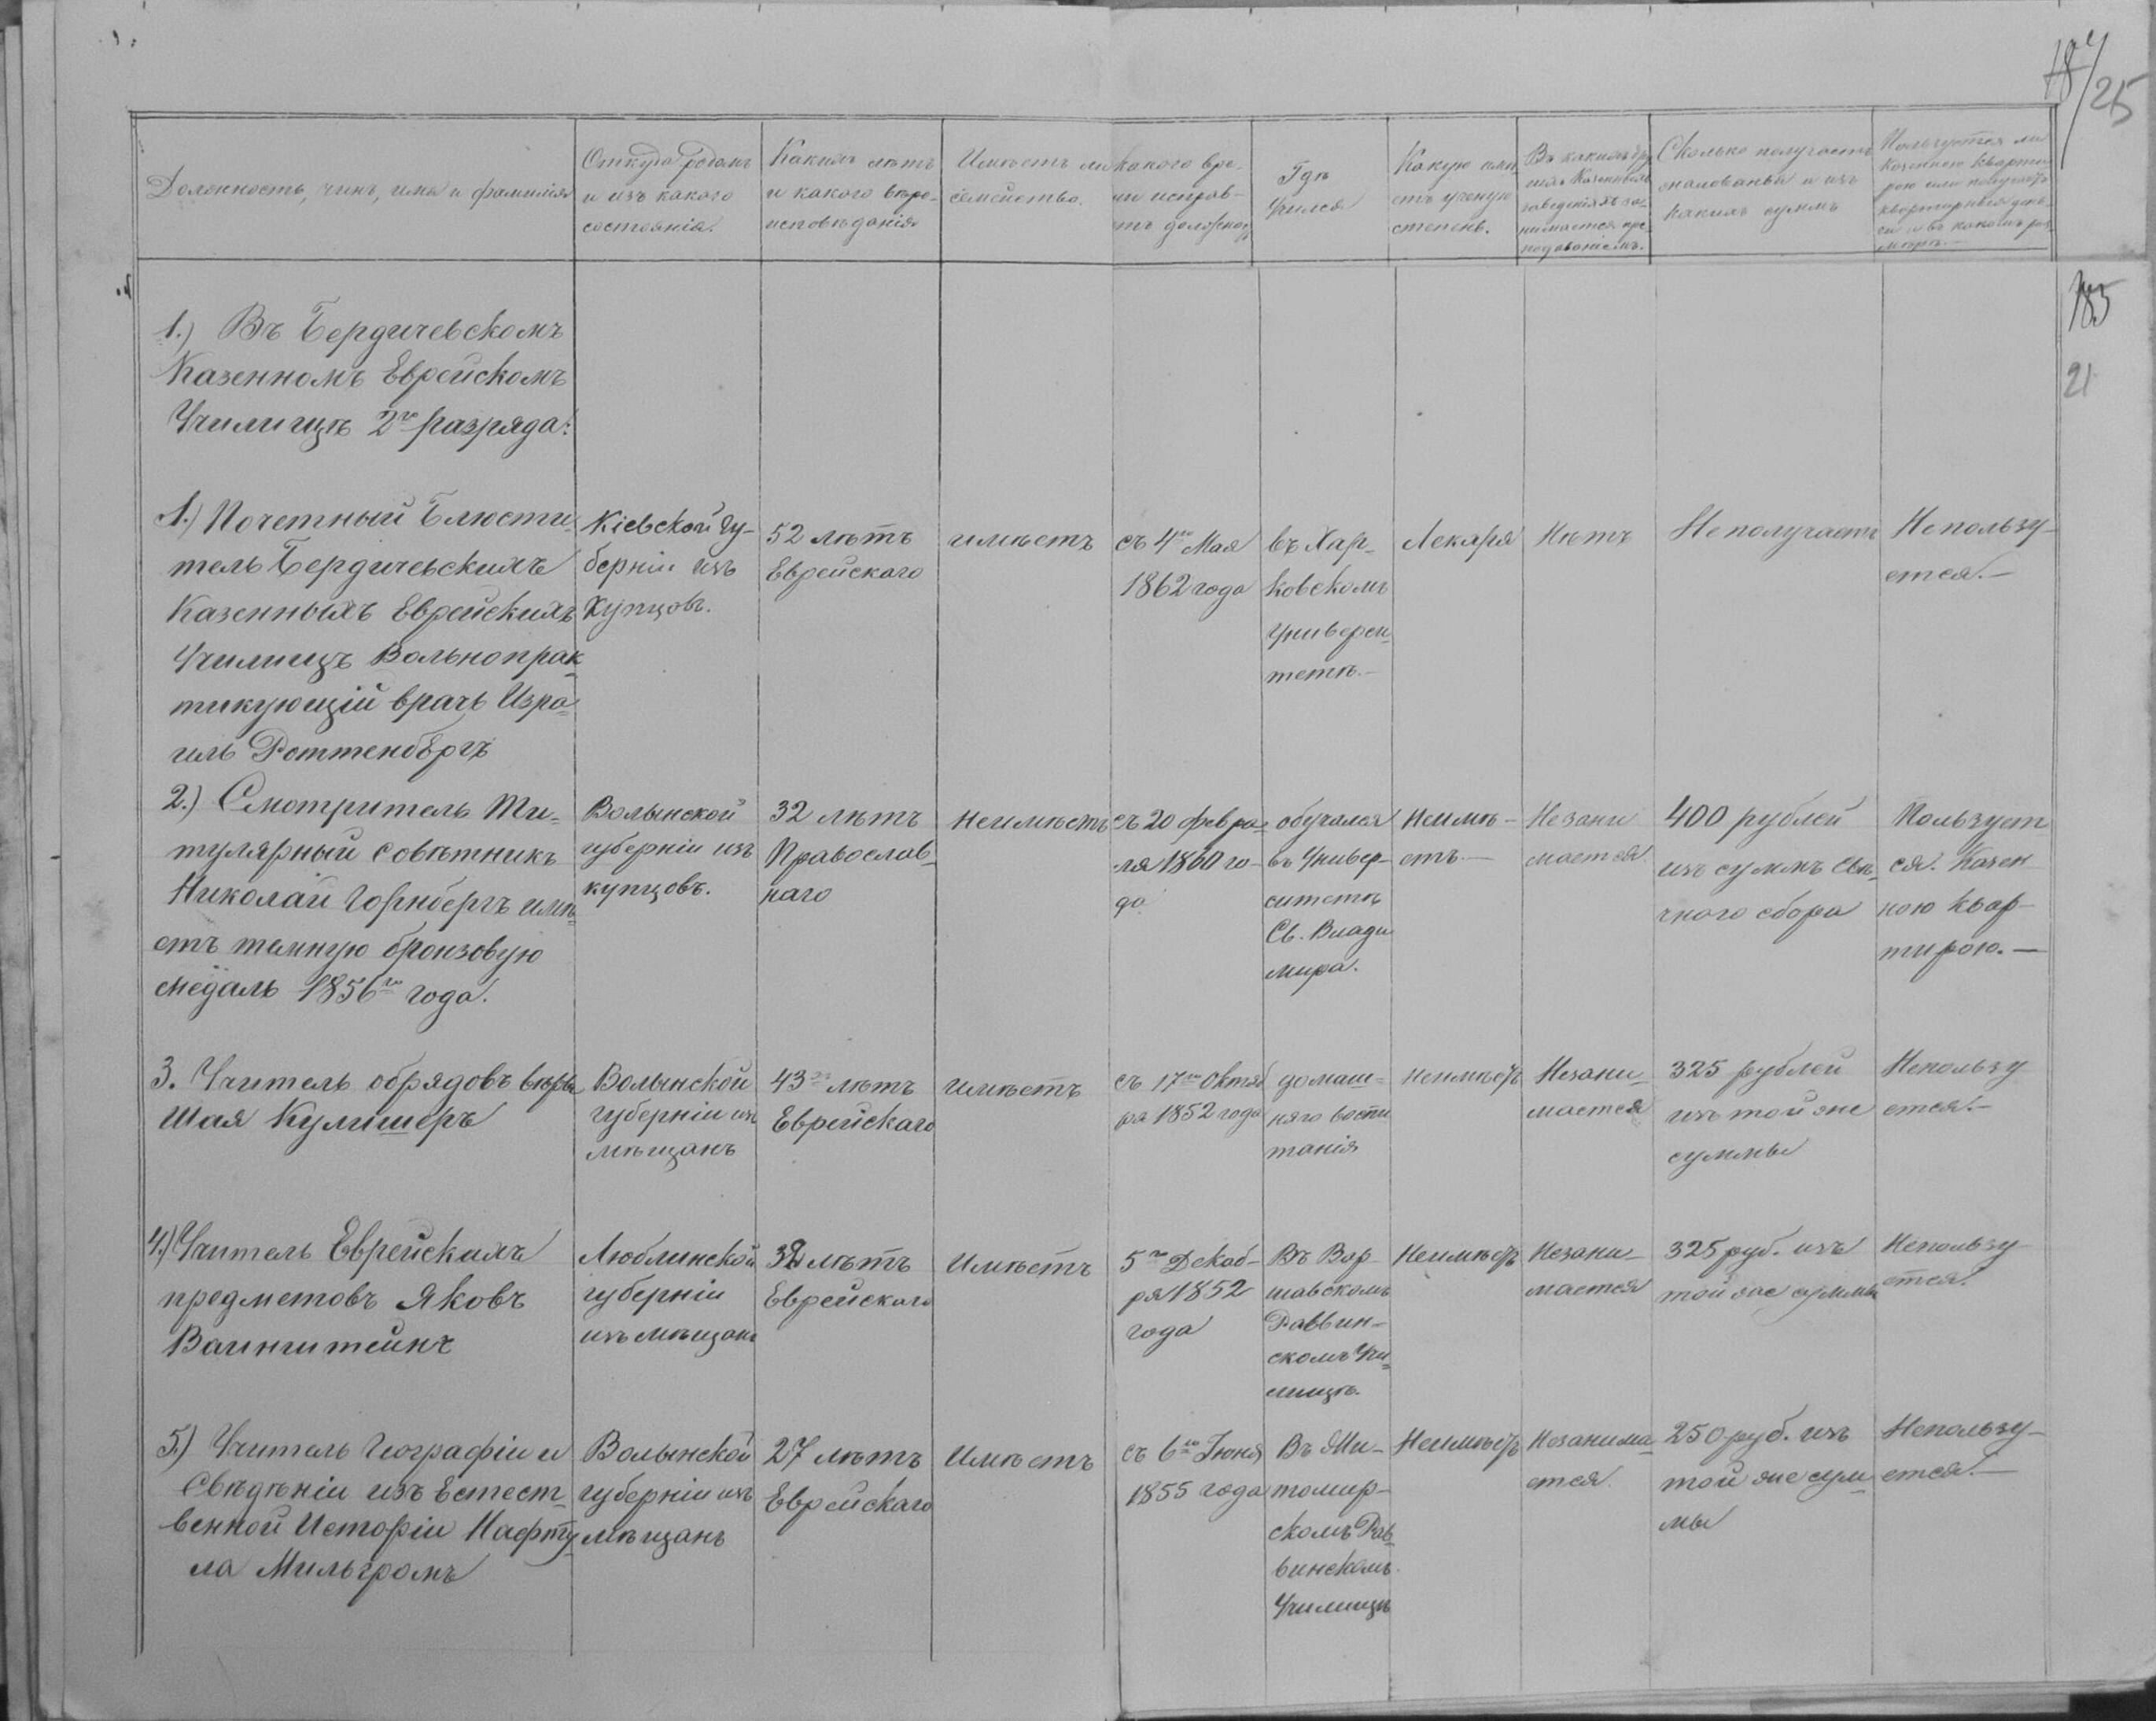 184/25
Должность, чинъ, имя и фамилія
Откуда родомъ
и изъ какого
состоянія.
Какихъ лѣтъ
и какого вѣро-
исповѣданія
Имѣетъ ли
семейство.
какого вре-
ни исправ-
тъ должнос
Гдѣ
Учился
Какую имѣ
етъ ученую
степень.
Въ какихъ др
гихъ Казенныхъ
заведеніяхъ за-
нимается пре-
подаваніемъ.
Сколько получаетъ
жалованья и изъ
какихъ суммъ
Пользуется ли
Казенною кварти
рою или получаетъ
квартирныя день-
ги и въ какомъ раз
мѣрѣ.
185
21
1.) Въ Бердичевскомъ
Казенномъ Еврейскомъ
Училищѣ 2го разряда:
1.) Почетный Блюсти-
тель Бердичевскихъ
Казенныхъ Еврейскихъ
Училищъ Вольнопрак-
тикующій врачъ Изра-
иль Роттенбергъ
Кіевской Гу-
берніи изъ
Купцовъ.
52 лѣтъ
Еврейскаго
имѣетъ
съ 4го Мая
1862 года
въ Хар-
ковскомъ
Универси-
тетѣ.-
Лекаря
Нѣтъ
Не получаетъ
Не пользу-
ется.-
2.) Смотритель Ти-
тулярный совѣтникъ
Николай Горнбергъ имѣ-
етъ темную бронзовую
медаль 1856го года.
Волынской
губерніи изъ
купцовъ.
32 лѣтъ
Православ-
наго
неимѣетъ
съ 20 февра-
ля 1860 го-
да
обучался
въ Универ-
ситетѣ
Св. Влади
мира.
Неимѣ-
етъ.-
Незани
мается
400 рублей
изъ суммъ Свѣ-
чнаго сбора
Пользует
ся. Казен
ною квар-
тирою.-
3. Учитель обрядовъ вѣры
Шая Кулишеръ
Волынской
губерніи изъ
мѣщанъ
43хъ лѣтъ
Еврейскаго
имѣетъ
съ 17го Октяб
ря 1852 года
домаш-
няго воспи
танія
неимѣетъ
Незани-
мается
325 рублей
изъ той же
суммы
Непользу
ется.-
4.) Учитель Еврейскихъ
предметовъ Яковъ
Ваинштейнъ
Люблинской
губерніи
изъ мѣщанъ
32 лѣтъ
Еврейскаго
Имѣетъ
5го Декаб-
ря 1852
года
Въ Вар
шавскомъ
Раввин-
скомъ Учи-
лищѣ.
Неимѣетъ
Незани-
мается
325 руб. изъ
той же суммы
Непользу-
ется.
5.) Учитель Географіи и
Свѣдѣній изъ Естест-
венной Исторіи Нафту-
ла Мильгромъ
Волынской
губерніи изъ
мѣщанъ
27 лѣтъ
Еврейскаго
Имѣетъ
съ 6го Іюня
1855 года
Въ Жи-
томир-
скомъ Рав-
винскомъ
Училищѣ
Неимѣетъ
Незанима-
ется.
250 руб. изъ
той же сум-
мы
Непользу-
ется.-